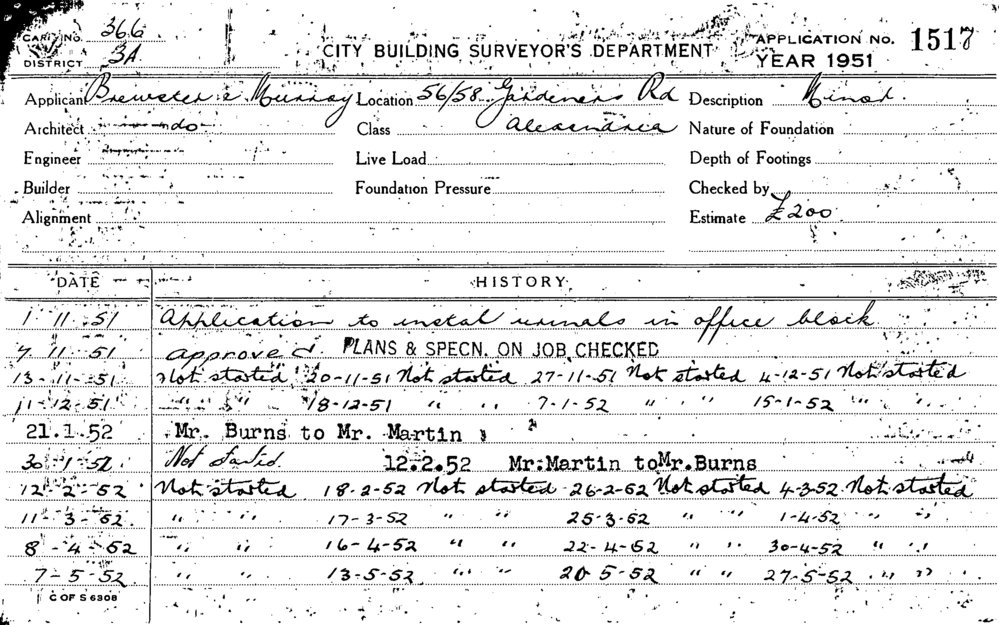 CARD No. 366
DISTRICT 3A
CITY BUILDING SURVEYOR'S DEPARTMENT
APPLICATION No. 1517
YEAR 1951
Applicant Brewster & Murray Location 56/58 Gardeners Rd Description Minor.
Architect do Class Alexandria Nature of Foundation
Engineer Live Load Depth of Footings
Builder Foundation Pressure Checked by
Alignment Estimate £200
DATE HISTORY
1 11 51 Application to instal urinals in office block
7 11 51 approved. PLANS & SPECN. ON JOB CHECKED
13-11-51 Not started 20-11-51 Not started 27-11-51 Not started 4-12-51 Not started
11-12-51 " " 18-12-51 " " 7-1-52 " " 15-1-52 " "
21.1.52 Mr. Burns to Mr. Martin
30-1-52 Not Started. 12.2.52 Mr:Martin toMr.Burns
12-2-52 Not started 18-2-52 Not started 26-2-52 Not started 4-3-52 Not started
11-3-52 " " 17-3-52 " " 25-3-52 " " 1-4-52 " "
8-4-52 " " 16-4-52 " " 22-4-52 " " 30-4-52 " "
7-5-52 " " 13-5-52 " " 20-5-52 " " 27-5-52 " "
C OF S 6308